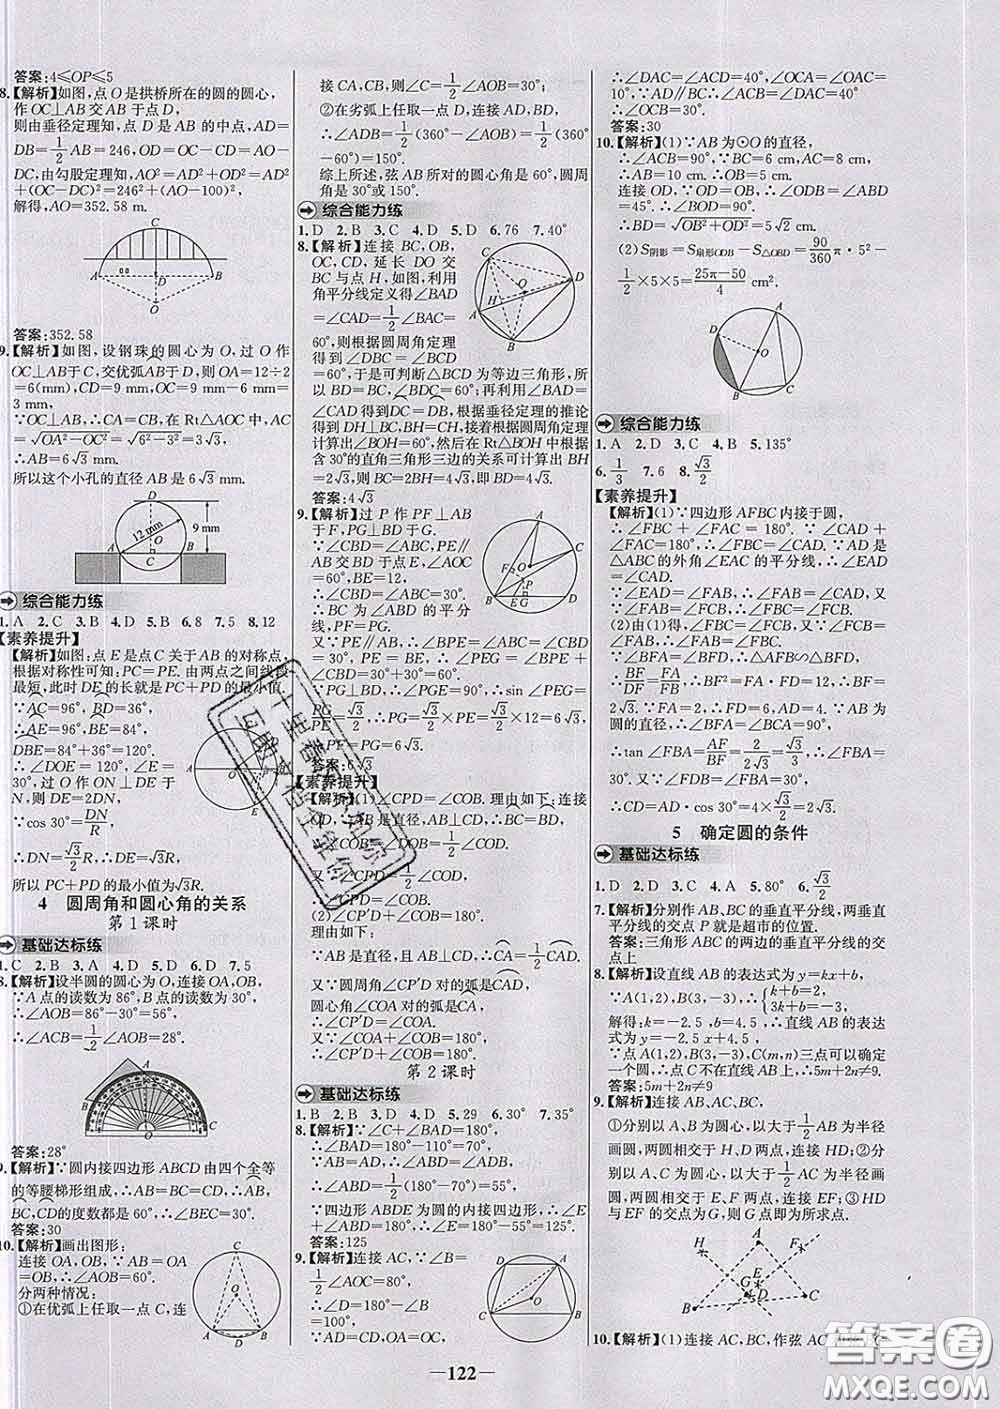 答案:4≤OP≤5
8.【解析】如图,点O是拱桥所在的圆的圆心,
作OC⊥AB交AB于点D,
则由垂径定理知,点D是AB的中点,AD=
DB=1/2AB=246,OD=OC-CD=AO-
DC,由勾股定理知,AO²=AD²+OD²=AD²
+(OC-DC)²=246²+(AO-100)²,
解得,AO=352.58 m.
答案:352.58
9.【解析】如图,设钢珠的圆心为O,过O作
OC⊥AB于C,交优弧AB于D,则OA=12÷2
=6(mm),CD=9 mm,OC=9 mm-6 mm=
3 mm,
∵OC⊥AB,∴CA=CB,在Rt△AOC中,AC
=√(OA²-OC²)=√(6²-3²)=3√3,
∴AB=6√3 mm.
所以这个小孔的直径AB是6√3 mm.
12 mm
9 mm
综合能力练
1.A 2.C 3.B 4.D 5.B 6.8 7.5 8.12
【素养提升】
【解析】如图:点E是点C关于AB的对称点,
根据对称性可知:PC=PE.由两点之间线段
最短,此时DE的长就是PC+PD的最小值.
∵AC=96°,BD=36°,
∴AE=96°,BE=84°,
DBE=84°+36°=120°,
∴∠DOE=120°,∠E=
30°,过O作ON⊥DE于
N,则DE=2DN,
∵cos 30°=DN/R,
∴DN=√3/2R,∴DE=√3R,
所以PC+PD的最小值为√3R.
4 圆周角和圆心角的关系
第1课时
基础达标练
1.C 2.B 3.A 4.D 5.D 6.D 7.5
8.【解析】设半圆的圆心为O,连接OA,OB,
∵A点的读数为86°,B点的读数为30°,
∴∠AOB=86°-30°=56°,
∴∠ACB=1/2∠AOB=28°.
答案:28°
9.【解析】∵圆内接四边形ABCD由四个全等
的等腰梯形组成,∴AB=BC=CD,∴AB,
BC,CD的度数都是60°,∴∠BEC=30°.
答案:30
10.【解析】画出图形:
连接OA,OB,∵AB=OA
=OB,∴∠AOB=60°.
分两种情况:
①在优弧上任取一点C,连
接CA,CB,则∠C=1/2∠AOB=30°;
②在劣弧上任取一点D,连接AD,BD,
∴∠ADB=1/2(360°-∠AOB)=1/2(360°
-60°)=150°.
综上所述,弦AB所对的圆心角是60°,圆周
角是30°或150°.
综合能力练
1.D 2.B 3.C 4.D 5.D 6.76 7.40°
8.【解析】连接BC,OB,
OC,CD,延长DO交
BC与点H,如图,利用
角平分线定义得∠BAD
=∠CAD=1/2∠BAC=
60°,则根据圆周角定理得
到∠DBC=∠BAC=
60°,于是可判断△BCD为等边三角形,所
以BD=BC,∠BDC=60°;再利用∠BAD=
∠CAD得到DC=DB,根据垂径定理的推论
得到DH⊥BC,BH=CH,接着根据圆周角定
理得到∠BOH=60°,然后在Rt△BOH中根据
含30°的直角三角形三边的关系可计算出BH
=2√3,所以BC=2BH=4√3,即BD=4√3.
答案:4√3
9.【解析】过P作PF⊥AB
于F,PG⊥BD于G.
∵∠CBD=∠ABC,PE∥
AB交BD于E,∠AOC=
60°,BE=12,
∴∠CBD=∠ABC=30°.
∴BC为∠ABD的平分
线,PF=PG.
又∵PE∥AB,∴∠BPE=∠ABC=
30°,∴∠PEG=∠BPE+
∠CBD=30°+30°=60°.
∵PG⊥BD,∴∠PGE=90°,∴sin ∠PEG
=√3/2,∴PG=√3/2×PE=√3/2×12=6√3,
∴PF=PG=6√3.
答案:6√3
【素养提升】
【解析】(1)∠CPD=∠COB.理由如下:连接
OD.
(2)∠CP′D+∠COB=180°.
理由如下:
∵AB是直径,且AB⊥CD,∴CA=1/2CD.
又∵圆周角∠CP′D对的弧是CAD,
圆心角∠COA对的弧是CA,
∴∠CP′D=∠COA.
又∵∠COA+∠COB=180°,
∴∠CP′D+∠COB=180°.
第2课时
基础达标练
1.B 2.B 3.D 4.D 5.29 6.30° 7.35°
8.【解析】∵∠C+∠BAD=180°,
∴∠BAD=180°-110°=70°.
∵AB=AD,
∴∠ABD=1/2(180°-∠BAD)=55°,
∵四边形ABDE为圆的内接四边形,∴∠E
+∠ABD=180°,∴∠E=180°-55°=125°.
答案:125
9.【解析】连接AC,∵∠B=
1/2∠AOC=80°,
∴∠D=180°-∠B
=100°.
∴∠DAC=∠ACD=40°,∴∠OAC=
10°,∵AD∥BC,∴∠ACB=∠DAC=40°,
∴∠OCB=30°.
答案:30
10.【解析】(1)∵AB为⊙O的直径,
∴∠ACB=90°.∵BC=6 cm,AC=8 cm,
∴AB=10 cm.∴OB=5 cm.
连接OD,∵OD=OB,∴∠ODB=∠ABD
=45°.∴∠BOD=90°.
∴BD=√(OB²+OD²)=5√2 cm.
(2)S阴影=S扇形ODB-S△OBD=90/360π·5²-
1/2×5×5=(25π-50)/4 cm².
综合能力练
1.A 2.D 3.C 4.B 5.135°
6.1/3 7.6 8.√3/2
【素养提升】
【解析】(1)∵四边形AFBC内接于圆,
∴∠FBC+∠FAC=180°.∵∠CAD+
∠FAC=180°,∴∠FBC=∠CAD.∵AD是
△ABC的外角∠EAC的平分线,∴∠EAD
=∠CAD.
∵∠EAD=∠FAB,∴∠FAB=∠CAD.
又∵∠FAB=∠FCB,∴∠FBC=∠FCB.
(2)由(1)得∠FBC=∠FCB.又∵∠FCB=
∠FAB,∴∠FAB=∠FBC.
∵∠BFA=∠BFD,∴△AFB∽△BFD,
∴BF/FD=FA/FB,∴BF²=FA·FD=12,∴BF=
2√3.∵FA=2,∴FD=6,AD=4.∵AB为
圆的直径,∴∠BFA=∠BCA=90°,
∴tan ∠FBA=AF/BF=2/(2√3)=√3/3,∴∠FBA=30°.
∴CD=AD·cos 30°=4×√3/2=2√3.
5 确定圆的条件
基础达标练
1.D 2.D 3.C 4.A 5.80° 6.√3/2
7.【解析】分别作AB,BC的垂直平分线,两垂直
平分线的交点P就是超市的位置.
答案:三角形ABC的两边的垂直平分线的交
点上
8.【解析】设直线AB的表达式为y=kx+b,
∵A(1,2),B(3,-3),∴{k+b=2,
k+b=-3,
解得:k=-2.5,b=4.5,∴直线AB的表达
式为y=-2.5x+4.5,
∵点A(1,2),B(3,-3),C(m,n)三点可以确定
一个圆,∴点C不在直线AB上,∴5m+2n≠9.
答案:5m+2n≠9
9.【解析】连接AB,AC,
①分别以A,B为圆心,以大于1/2AB为半径
画圆,两圆相交于D,H两点,连接HD;②分
别以A、C为圆心,以大于1/2AC为半径画
圆,两圆相交于E、F两点,连接EF;③HD
与EF的交点为G,则G点即为所求点.
10.【解析】(1)连接AC,BC,作弦AC
—122—
答案圈
MXQE.COM